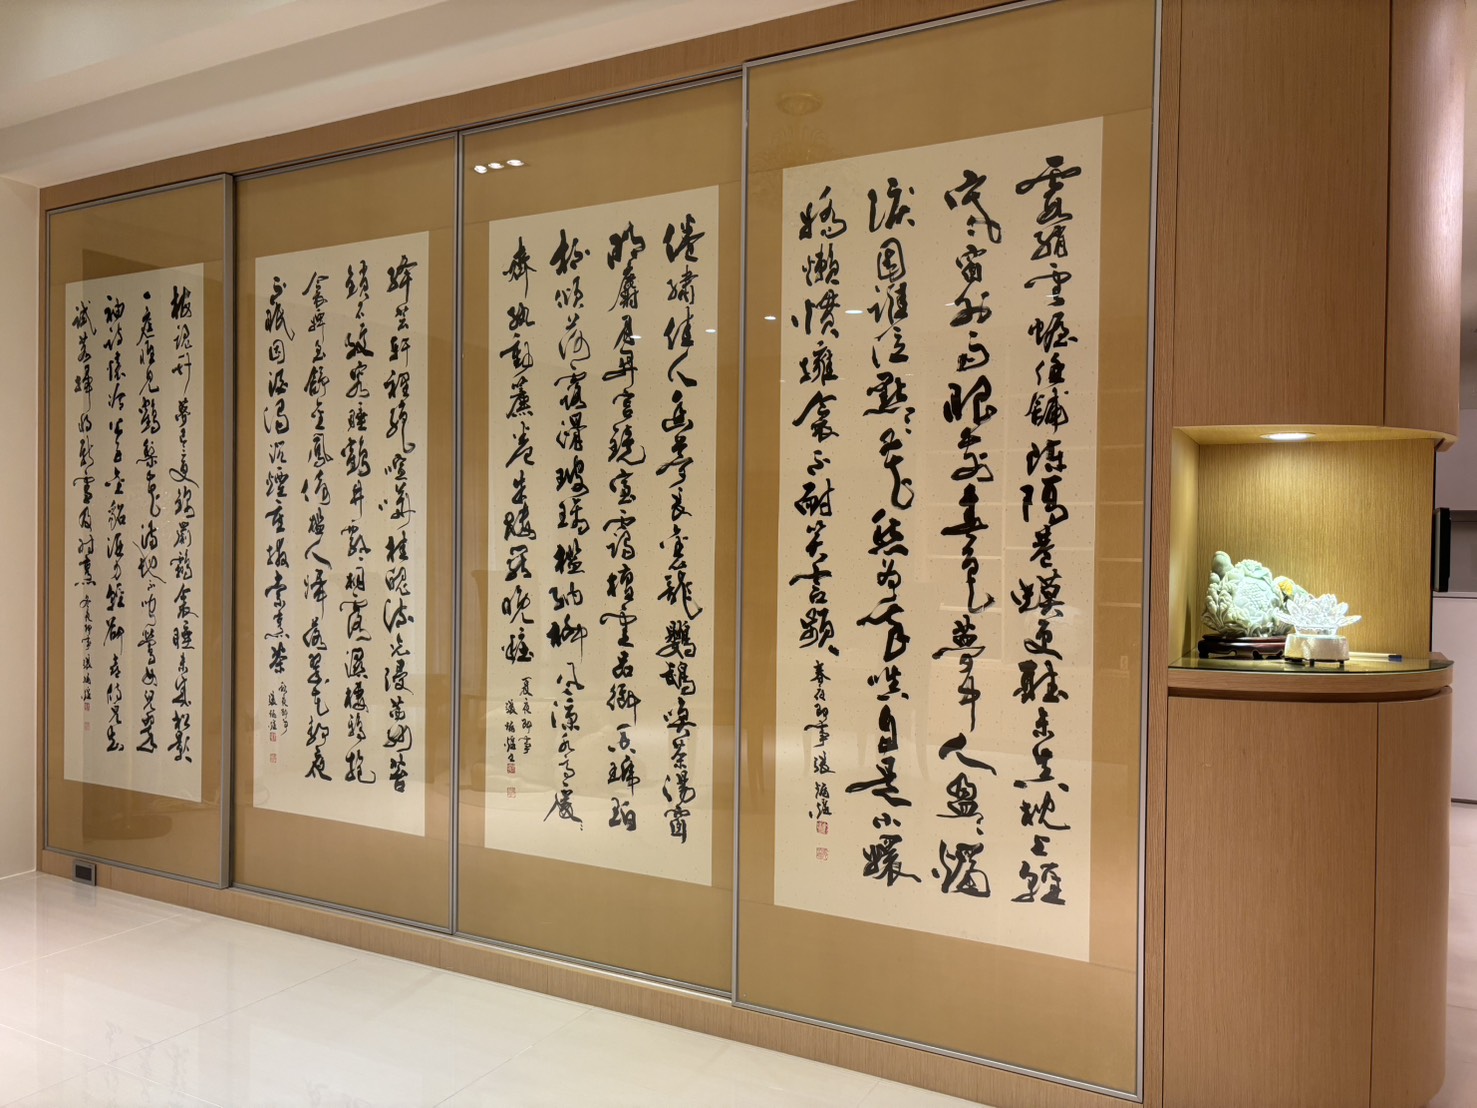 霞綃雲幄任鋪陳隔巷蟆更聽未真枕上輕
寒窗外雨眼前春色夢中人盈盈燭
淚因誰泣點點花愁為我嗔自是小鬟
嬌懶慣擁衾不耐笑言頻 春夜即事 張
倦繡佳人幽夢長金籠鸚鵡喚茶湯窗
明麝月開宮鏡室靄檀雲品御香琥珀
杯傾荷露滑玻璃檻納柳風涼水亭處處
齊紈動簾捲朱樓罷晚妝 夏夜即事
張
絳芸軒裡絕喧嘩桂魄流光浸茜紗苔
鎖石紋容睡鶴井飄桐露濕棲鴉抱
衾婢至舒金鳳倚檻人歸落翠花靜夜
不眠因酒渴沉煙重撥索烹茶 秋夜即事
張
梅魂竹夢已三更錦罽鸘衾睡未成松影
一庭惟見鶴梨花滿地不聞鶯女兒翠
袖詩懷冷公子金貂酒力輕卻喜侍兒知
試茗掃將新雪及時烹 冬夜即事 張